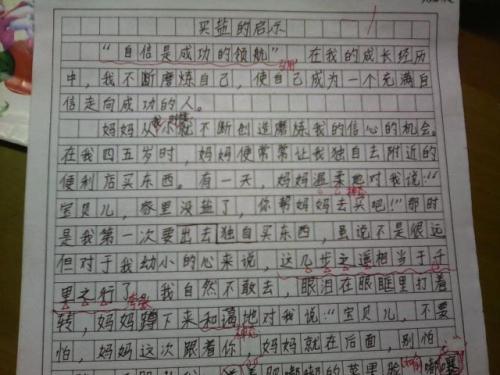 买盐的启示
“自信是成功的领航”在我的成长经历
中，我不断磨炼自己，使自己成为一个充满自
信走向成功的人。
妈妈从小就不断创造磨炼我的信心的机会。
在我四五岁时，妈妈便常常让我独自去附近的
便利店买东西。有一天，妈妈温柔地对我说：“
宝贝儿，家里没盐了，你帮妈妈去买吧！”那时
是我第一次要出去独自买东西，虽说不是很远
但对于我幼小的心来说，这几步之遥相当于千
里之行了。我自然不敢去，眼泪在眼眶里打着
转，妈妈蹲下来和蔼地对我说：“宝贝儿，不要
怕，妈妈这次跟着你，妈妈就在后面，别怕，
肥嘟嘟的苹果脸 嘟噻